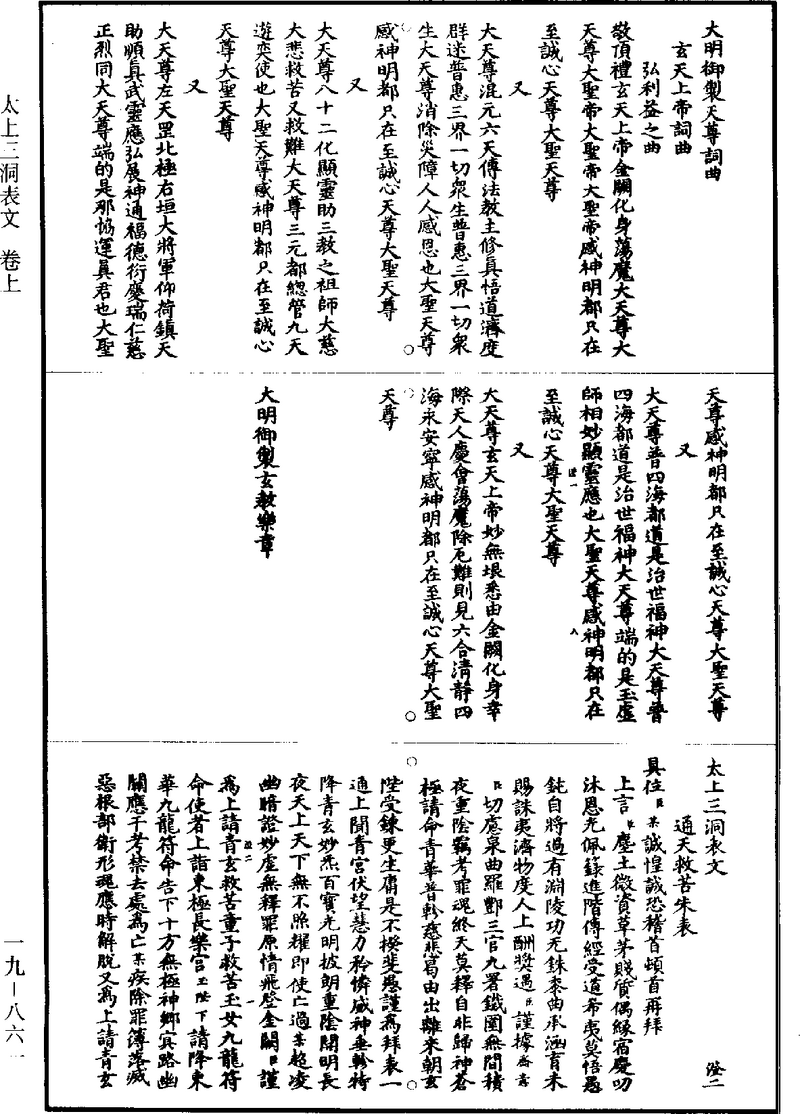 大明御製天尊詞曲
玄天上帝詞曲
弘利益之曲
敬頂禮玄天上帝金闕化身蕩魔大天尊大
天尊大聖帝大聖帝大聖帝感神明都只在
至誠心天尊大聖天尊
又
大天尊混元六天傳法教主修真悟道濟度
群迷普惠三界一切衆生普惠三界一切衆
生大天尊消除災障人人感恩也大聖天尊
感神明都只在至誠心天尊大聖天尊
又
大天尊八十二化顯靈助三教之祖師大慈
大悲救苦又救難大天尊三元都總管九天
遊奕使也大聖天尊感神明都只在至誠心
天尊大聖天尊
又
大天尊左天罡北極右垣大將軍仰荷鎮天
助順真武靈應弘展神通福德衍慶瑞仁慈
正烈同大天尊端的是那協運真君也大聖
天尊感神明都只在至誠心天尊大聖天尊
又
大天尊普四海都道是治世福神大天尊普
四海都道是治世福神大天尊端的是玉虛
師相妙顯靈應也大聖天尊感神明都只在
至誠心天尊大聖天尊
又
大天尊玄天上帝妙無垠悉由金闕化身幸
際天人慶會蕩魔除厄難則見六合清靜四
海永安寧感神明都只在至誠心天尊大聖
天尊
大明御製玄教樂章
太上三洞表文
通天救苦朱表
具位臣某誠惶誠恐稽首頓首再拜
上言臣塵土微資草茅賤質偶緣宿慶叨
沐恩光佩籙進階傳經受道希夷莫悟愚
鈍自將過有淵陵功无銖黍曲承涵育未
賜誅夷濟物度人上酬獎遇臣謹據齋意
臣切慮泉曲羅酆三官九署鐵圍無間積
夜重陰羈考罪魂終天莫釋自非歸神蒼
極請命青華普軫慈悲曷由出離來朝玄
陛受鍊更生庸是不揆斐愚謹為拜表一
通上聞青宮伏望慧力矜憐威神垂軫特
降青玄妙炁百寶光明披朗重陰開明長
夜天上天下無不照耀即使亡過某超凌
幽暗證妙虛無釋罪原情飛登金闕臣謹
為上請青玄救苦童子救苦玉女九龍符
命使者上詣東極長樂宮玉陛下請降東
華九龍符命告下十方無極神鄉冥路幽
關應干考禁去處為亡某疾除罪簿落滅
惡根部衛形魂應時解脫又為上請青玄
太上三洞表文　卷上
一九—八六一
澄二